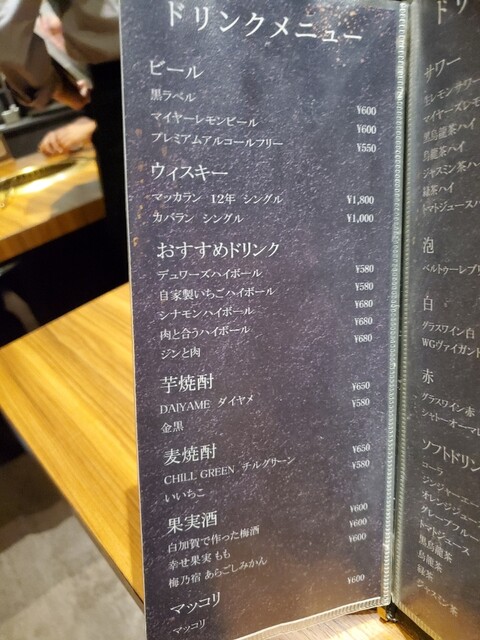 ドリンクメニュー
ビール
黒ラベル ¥600
マイヤーレモンビール ¥600
プレミアムアルコールフリー ¥550
ウィスキー
マッカラン 12年 シングル ¥1,800
カバラン シングル ¥1,000
おすすめドリンク
デュワーズハイボール ¥580
自家製いちごハイボール ¥580
シナモンハイボール ¥680
肉と合うハイボール ¥680
ジンと肉 ¥680
芋焼酎
DAIYAME ダイヤメ ¥650
金黒 ¥580
麦焼酎
CHILL GREEN チルグリーン ¥650
いいちこ ¥580
果実酒
白加賀で作った梅酒 ¥600
幸せ果実 もも ¥600
梅乃宿 あらごしみかん ¥600
マッコリ
マッコリ ¥600
ドリ
サワー
レモンサワー
マイヤーズレモ
黒烏龍茶ハイ
烏龍茶ハイ
ジャスミン茶ハイ
緑茶ハイ
トマトジュースハ
泡
ベルトゥーレブリ
白
グラスワイン白
WGヴァイガント
赤
グラスワイン赤
シャトーオーマレ
ソフトドリン
コーラ
ジンジャーエー
オレンジジュー
グレープフルー
トマトジュース
黒烏龍茶
烏龍茶
緑茶
ジャスミン茶